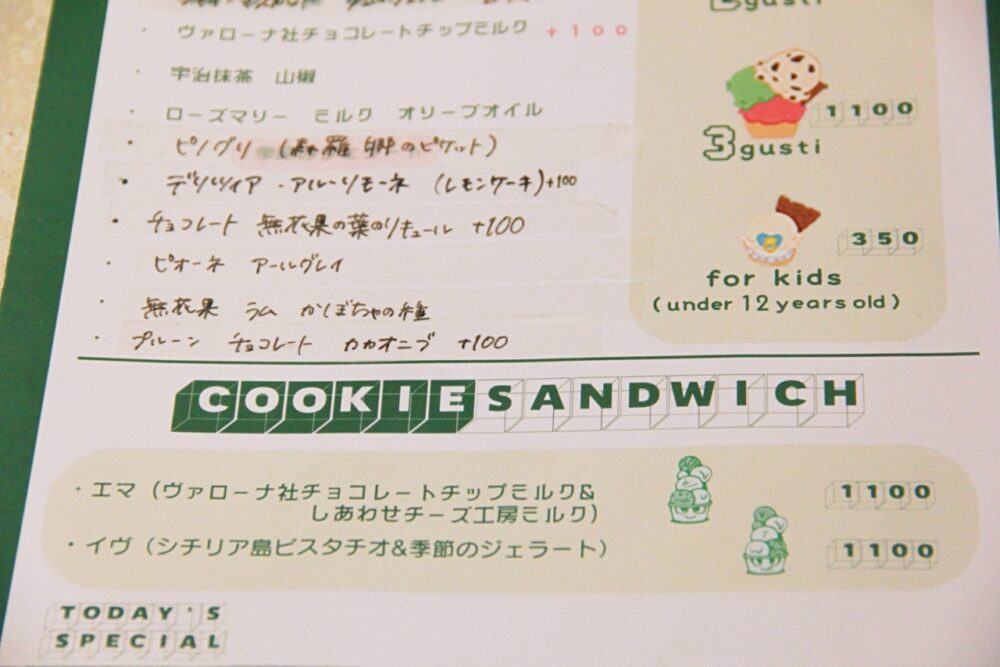 gusti
・ヴァローナ社チョコレートチップミルク +100
・宇治抹茶 山椒
・ローズマリー ミルク オリーブオイル
1100
・ピノグリ (森羅郷のピケット)
3 gusti
・デリツィア・アル・リモーネ (レモンケーキ)+100
・チョコレート 無花果の葉のリキュール +100
350
・ピオーネ アールグレイ
for kids
(under 12 years old)
・無花果 ラム かぼちゃの種
・プルーン チョコレート カカオニブ +100
COOKIE SANDWICH
・エマ（ヴァローナ社チョコレートチップミルク&
しあわせチーズ工房ミルク）
1100
・イヴ（シチリア島ピスタチオ&季節のジェラート）
1100
TODAY'S
SPECIAL